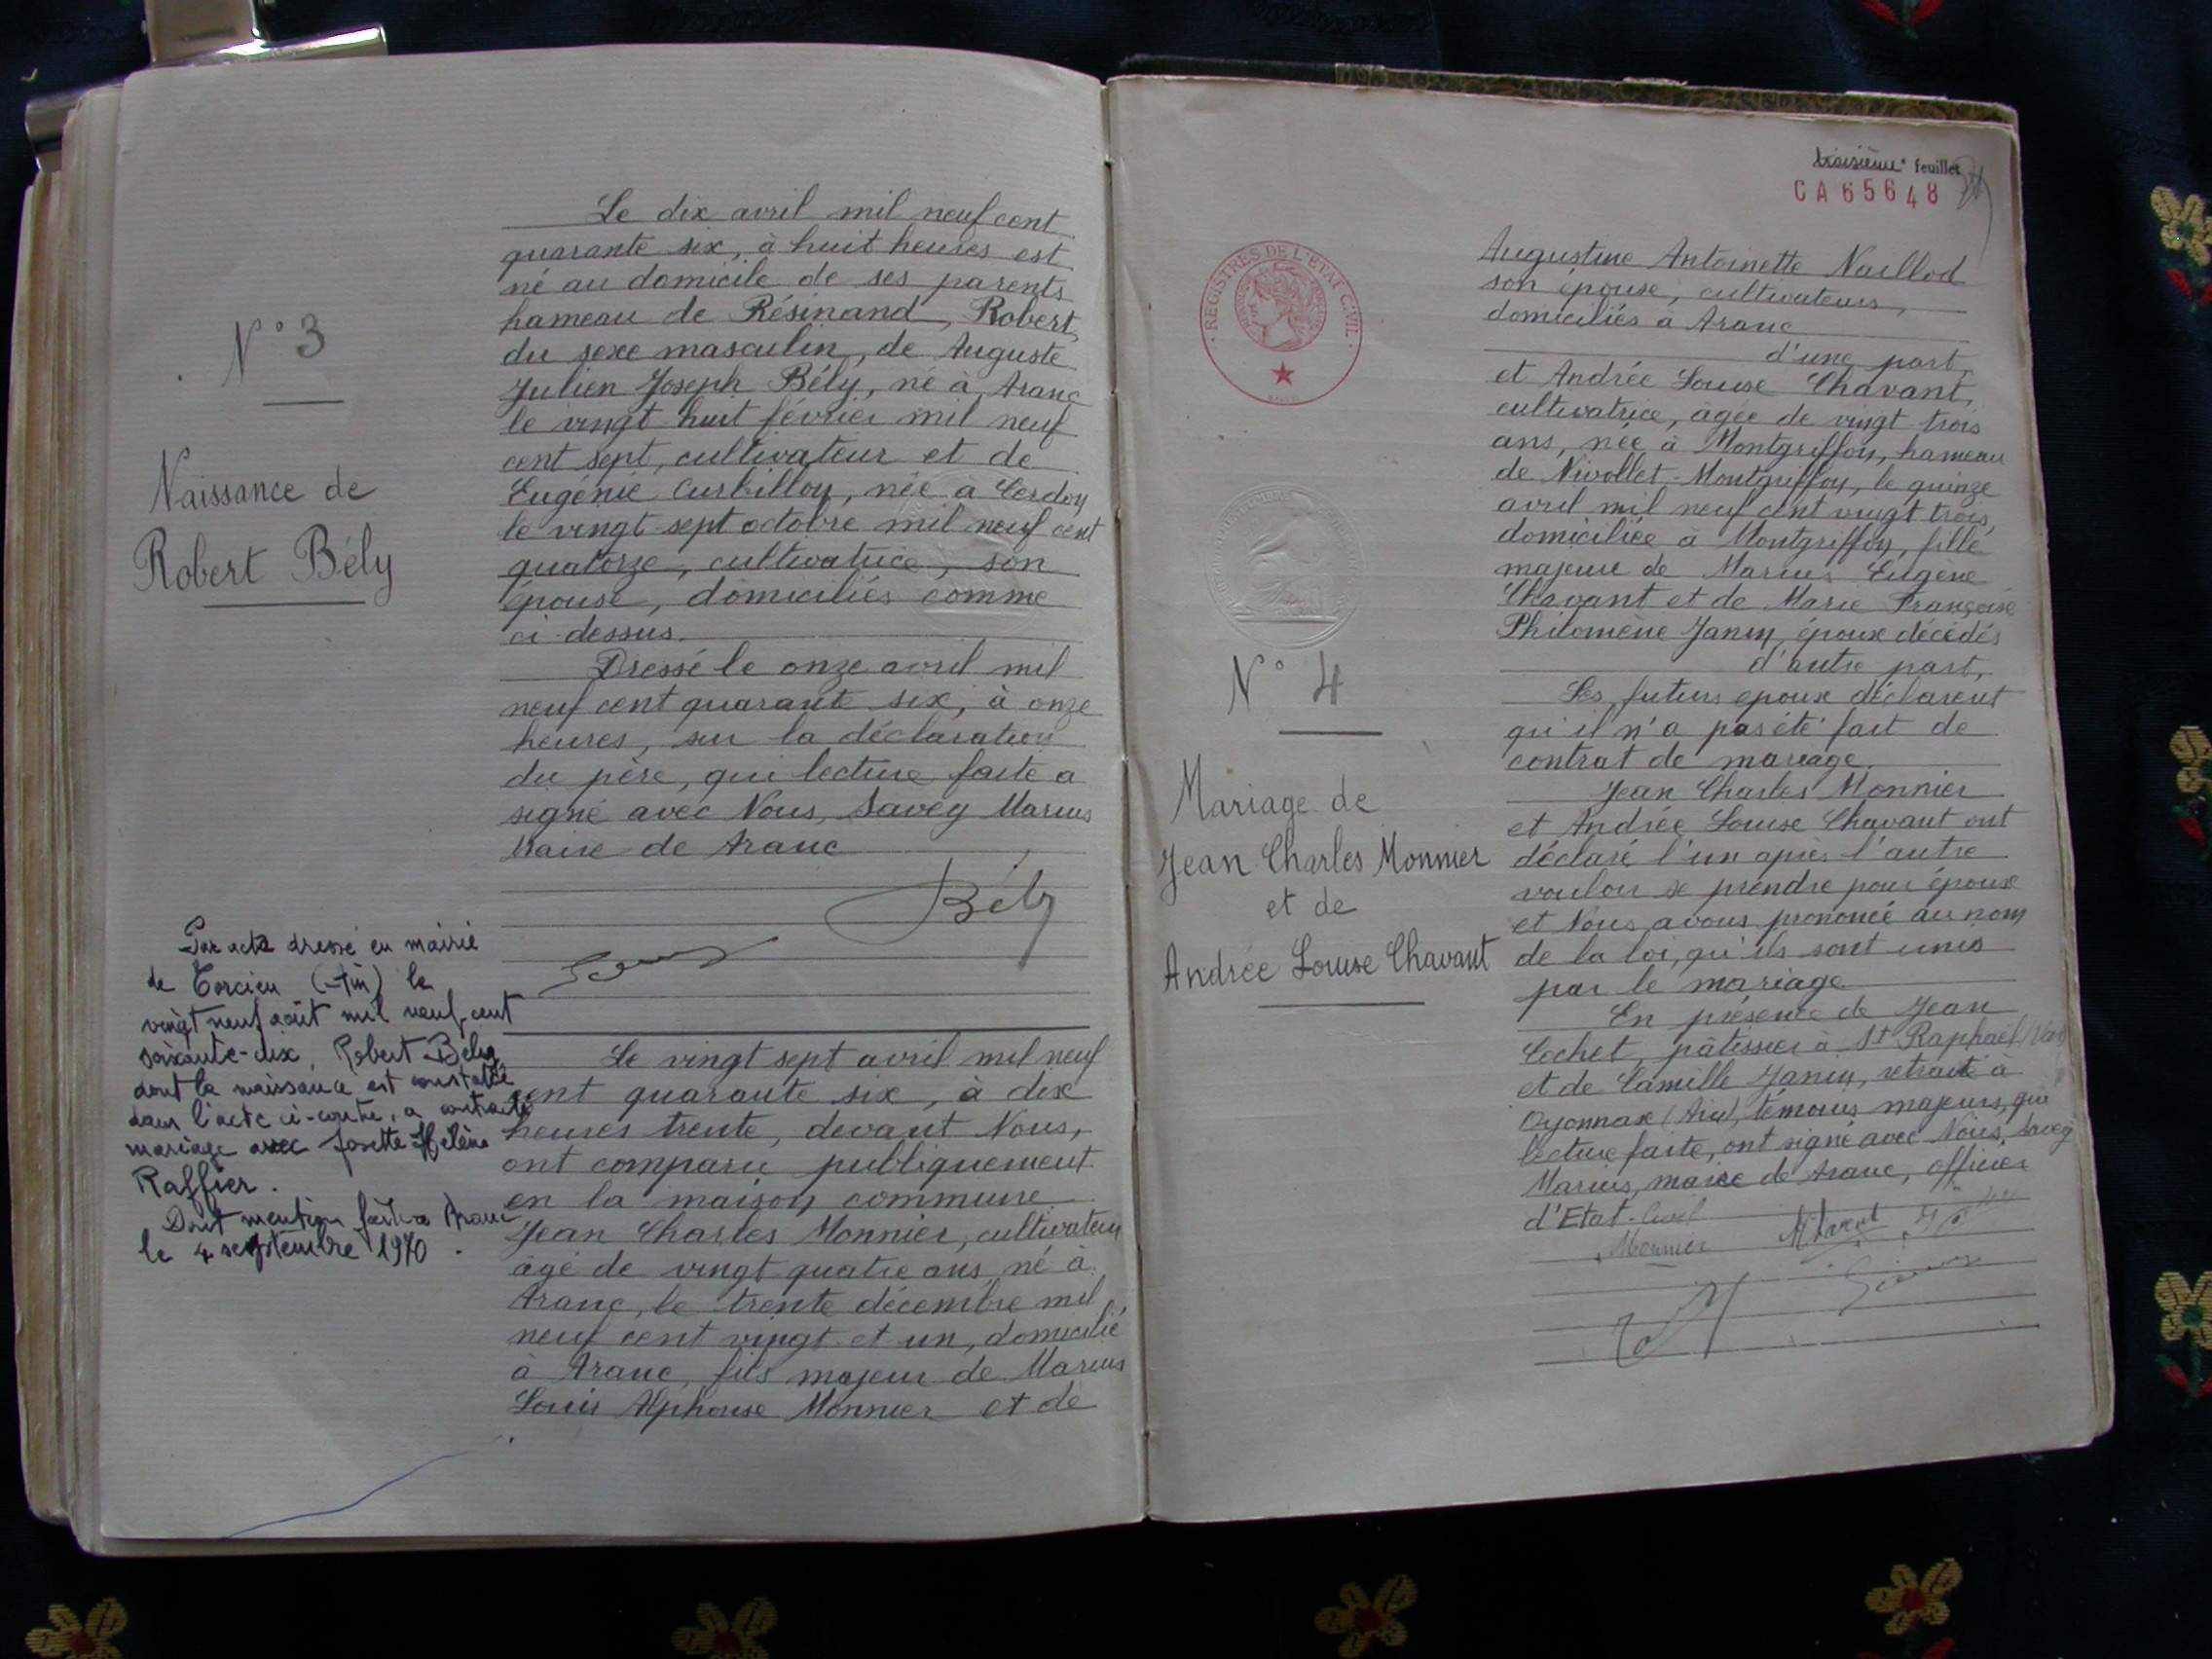 N° 3
Naissance de
Robert Bély
Le dix avril mil neuf cent
quarante six, à huit heures est
né au domicile de ses parents
hameau de Résinand, Robert,
du sexe masculin, de Auguste
Julien Joseph Bély, né à Aranc
le vingt huit février mil neuf
cent sept, cultivateur et de
Eugénie Curbillon, née à Cerdon
le vingt sept octobre mil neuf cent
quatorze, cultivatrice, son
épouse, domiciliés comme
ci dessus.
Dressé le onze avril mil
neuf cent quarante six, à onze
heures, sur la déclaration
du père, qui lecture faite a
signé avec Nous, Savey Marius
Maire de Aranc
Bély
Par acte dressé en mairie
de Torcieu (Ain) le
vingt neuf août mil neuf cent
soixante-dix, Robert Bély
dont la naissance est constatée
dans l'acte ci-contre, a contracté
mariage avec Josette Hélène
Raffier.
Dont mention faite à Aranc
le 4 septembre 1970.
Le vingt sept avril mil neuf
cent quarante six, à dix
heures trente, devant Nous,
ont comparu publiquement
en la maison commune
Jean Charles Monnier, cultivateur
âgé de vingt quatre ans né à
Aranc, le trente décembre mil
neuf cent vingt et un, domicilié
à Aranc, fils majeur de Marius
Louis Alphonse Monnier et de
troisième feuillet
CA65648
REGISTRES DE L'ETAT CIVIL
N° 4
Mariage de
Jean Charles Monnier
et de
Andrée Louise Chavant
Augustine Antoinette Naillod
son épouse, cultivateurs,
domiciliés à Aranc
d'une part,
et Andrée Louise Chavant,
cultivatrice, âgée de vingt trois
ans, née à Montgriffon, hameau
de Nivollet-Montgriffon, le quinze
avril mil neuf cent vingt trois,
domiciliée à Montgriffon, fille
majeure de Marius Eugène
Chavant et de Marie Françoise
Philomène Janin, époux décédés
d'autre part,
Les futurs epoux déclarent
qu'il n'a pas été fait de
contrat de mariage.
Jean Charles Monnier
et Andrée Louise Chavant ont
déclaré l'un après l'autre
vouloir se prendre pour époux
et Nous avons prononcé au nom
de la loi, qu'ils sont unis
par le mariage
En présence de Jean
Cochet, pâtissier à St Raphaël (Var)
et de Camille Janin, retraité à
Oyonnax (Ain), témoins majeurs, qui
lecture faite, ont signé avec Nous, Savey
Marius, maire de Aranc, officier
d'Etat-Civil
Monnier